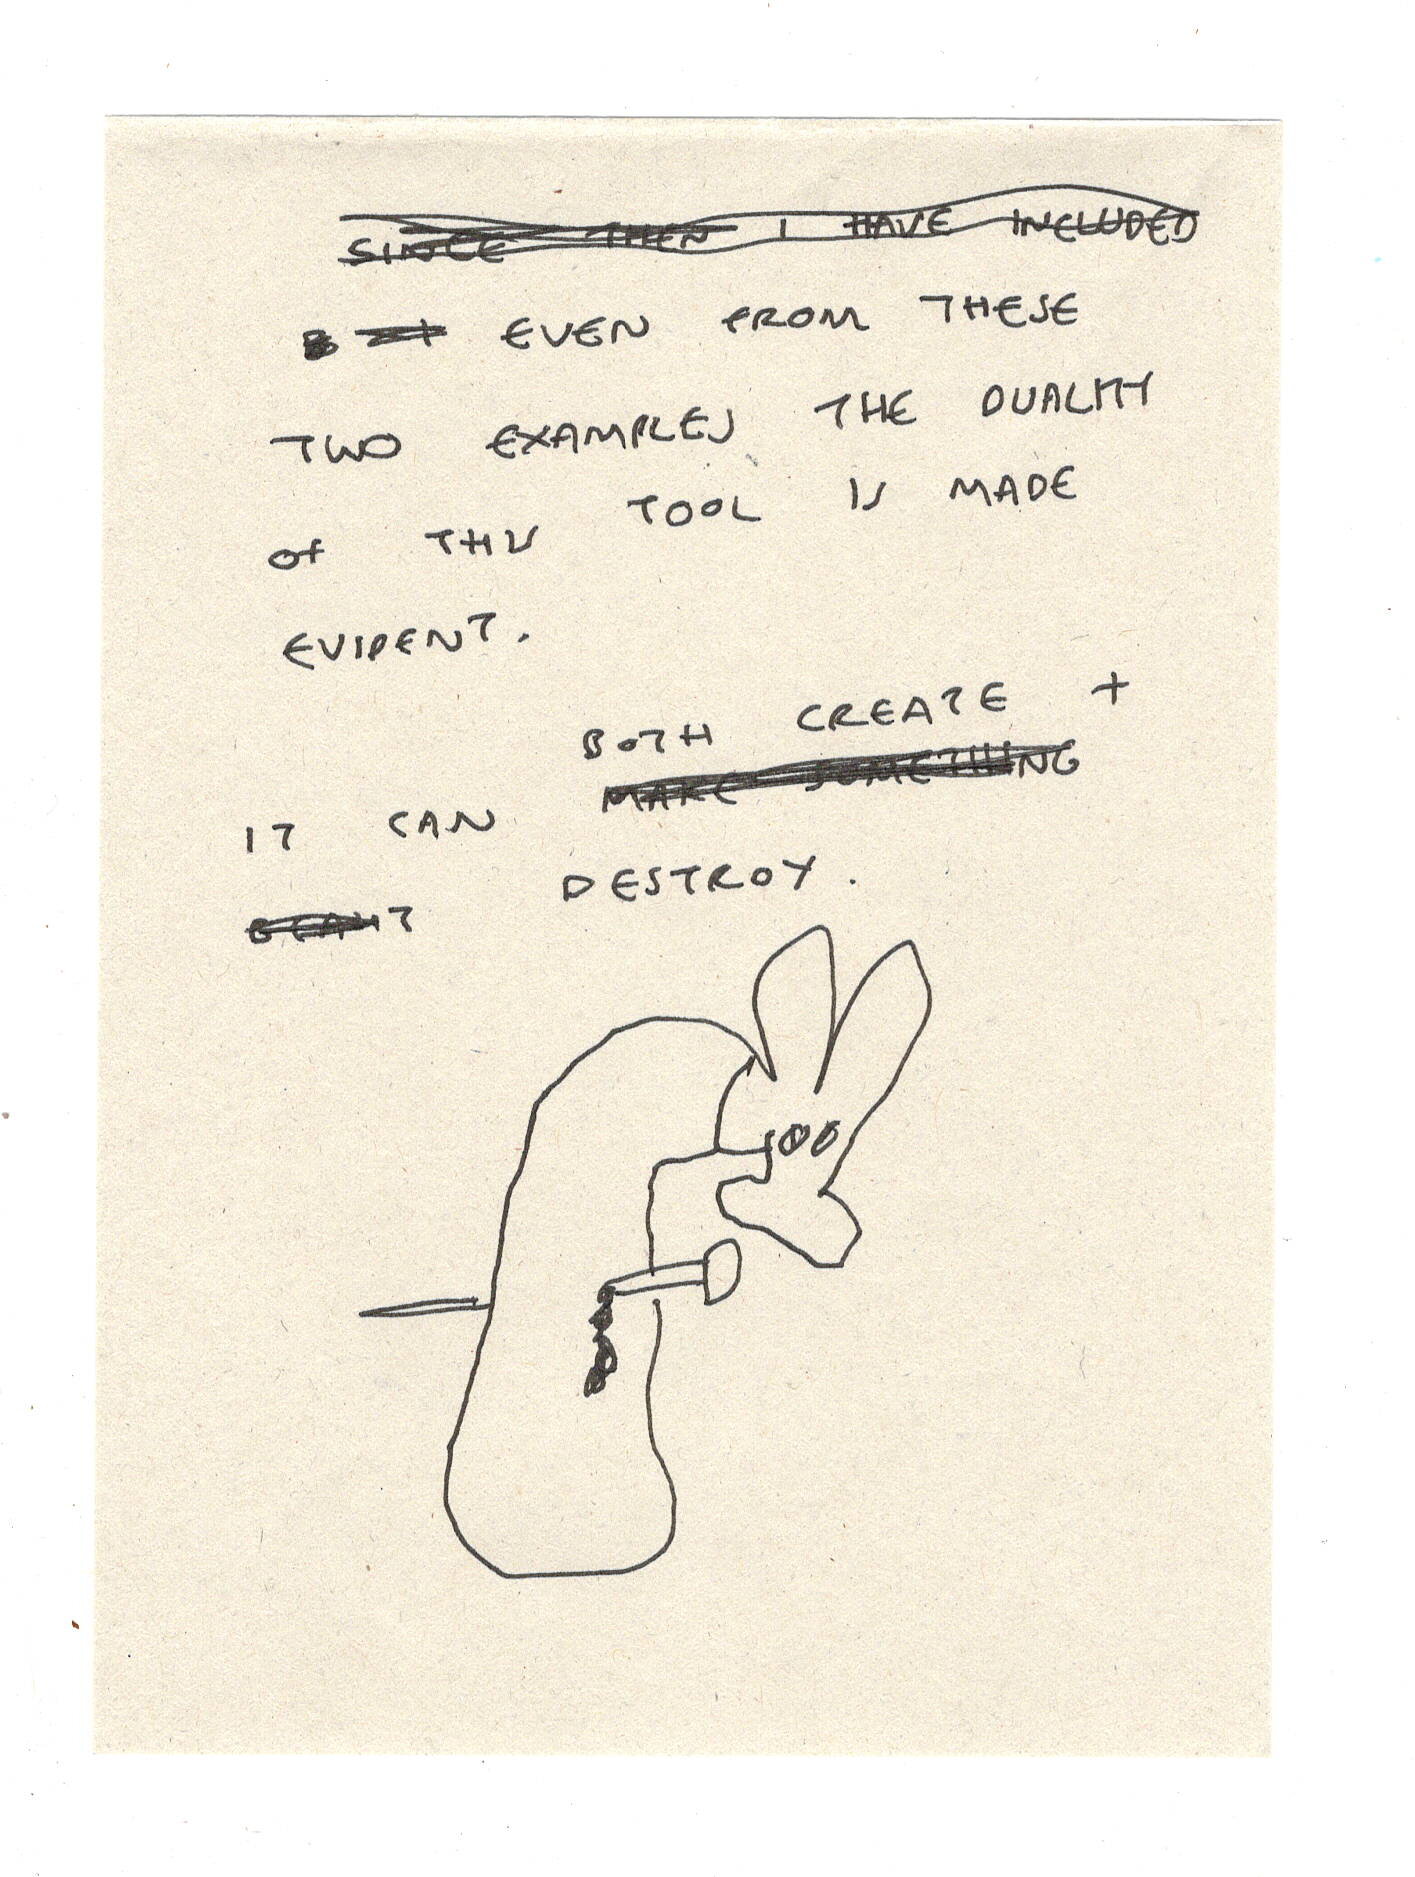 SINCE THEN I HAVE INCLUDED
EVEN FROM THESE
TWO EXAMPLES THE DUALITY
OF THIS TOOL IS MADE
EVIDENT.
BOTH CREATE +
IT CAN MAKE SOMETHING
DESTROY.